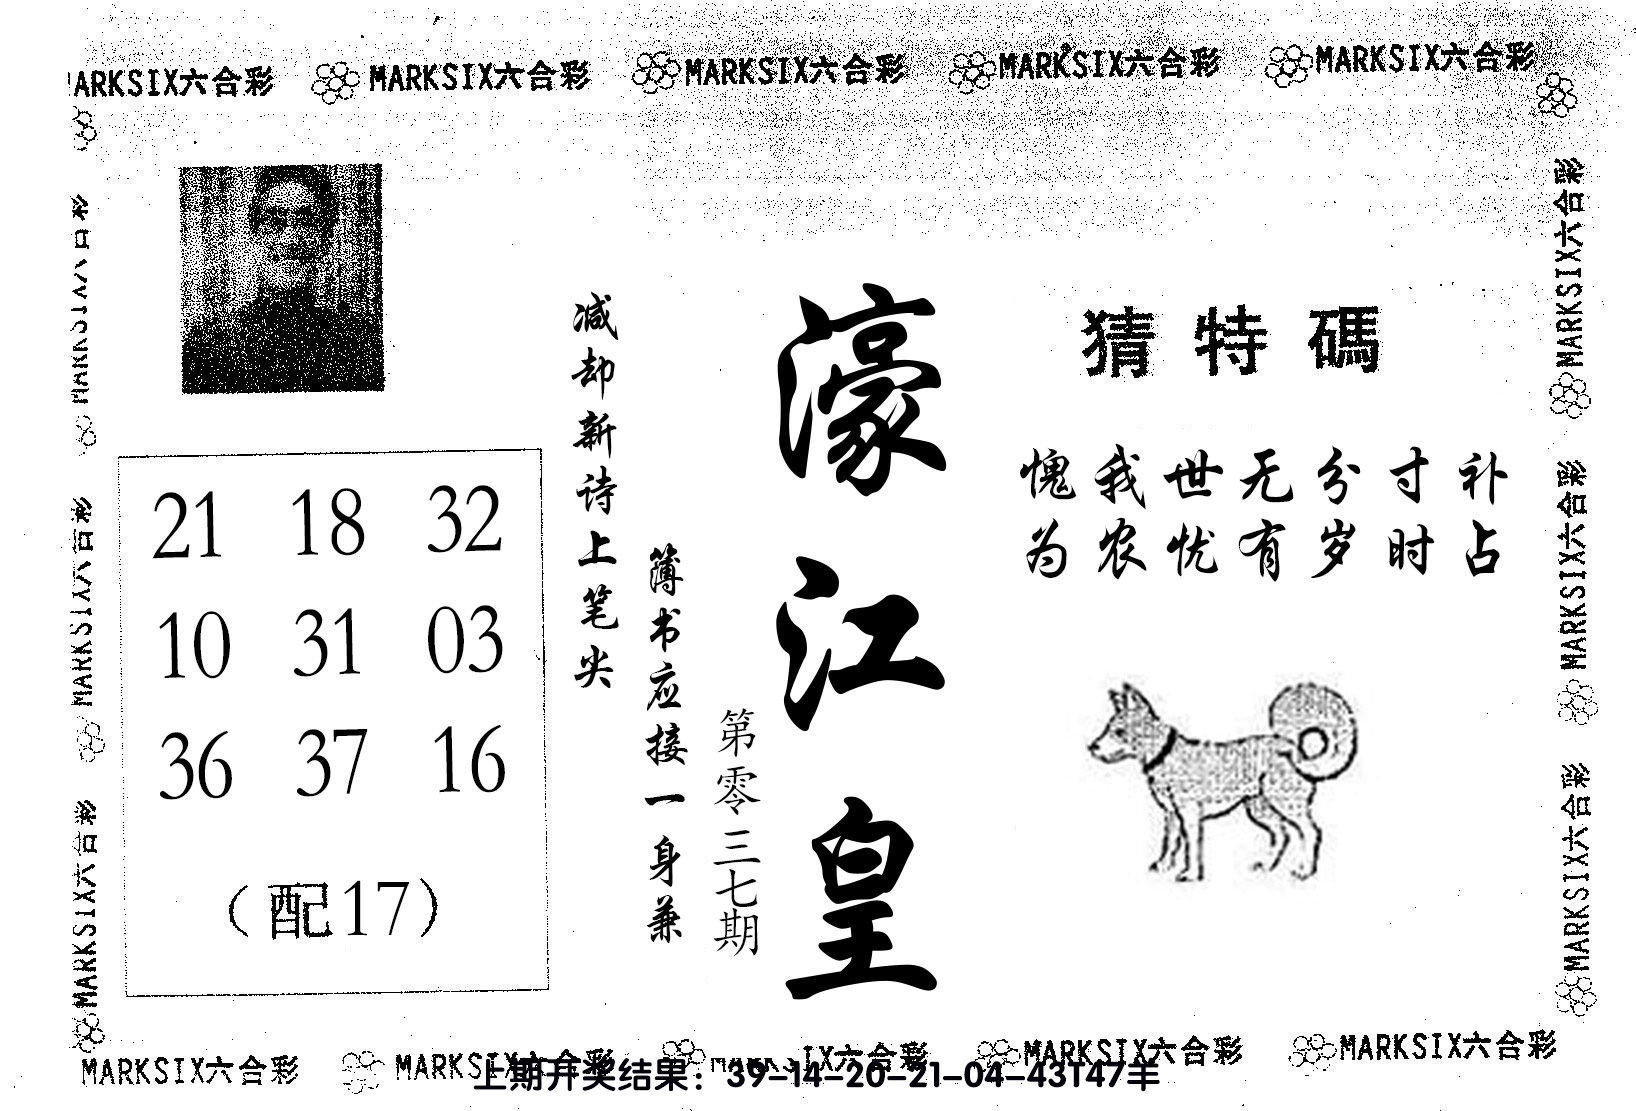 MARKSIX六合彩 MARKSIX六合彩 MARKSIX六合彩 MARKSIX六合彩
猜特碼
愧我世无分寸补
为农忧有岁时占
濠江皇
第零三七期
簿书应接一身兼
减却新诗上笔尖
21 18 32
10 31 03
36 37 16
（配17）
MARKSIX六合彩
MARKSIX六合彩
MARKSIX六合彩
MARKSIX六合彩
MARKSIX六合彩
MARKSIX六合彩 MARKSIX六合彩 MARKSIX六合彩 MARKSIX六合彩
上期开奖结果：39-14-20-21-04-43T47羊